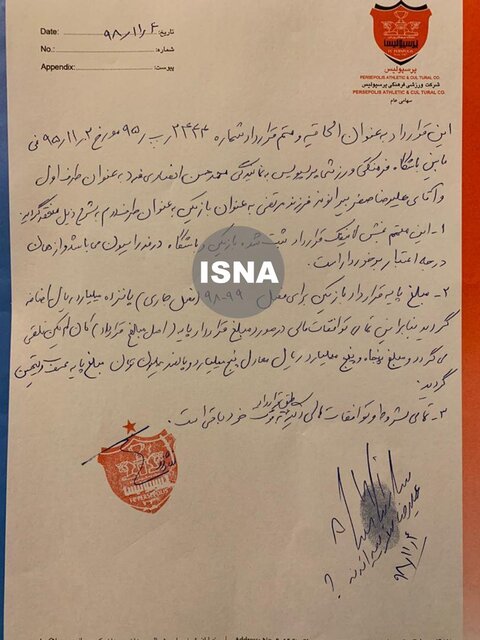 Date: ۹۸/۱۱/۰۶ تاریخ:
No.: شماره:
Appendix: پیوست:
پرسپولیس
F.C PERSPOLIS
پرسپولیس
PERSEPOLIS ATHLETIC & CULTURAL CO.
شرکت ورزشی فرهنگی پرسپولیس
PERSEPOLIS ATHLETIC & CULTURAL CO.
سهامی عام
این قرارداد به عنوان الحاقیه و متمم قرارداد شماره ۲۴۴۳/ر ب/۹۵ مورخ ۹۵/۱۱/۲ فی
ما بین باشگاه فرهنگی ورزشی پرسپولیس به نمایندگی محمدحسن انصاری فرد به عنوان طرف اول
و آقای علیرضا صفر بیرانوند فرزند مرتضی به عنوان بازیکن به عنوان طرف دوم به شرح ذیل منعقد گردید
۱- این متمم بخش لاینفک قرارداد ثبت شده بازیکن و باشگاه در فدراسیون می باشد و از همان
درجه اعتبار برخوردار است.
۲- مبلغ پایه قرارداد بازیکن برای فصل ۹۹-۹۸ (فصل جاری) پانزده میلیارد ریال اضافه
گردید بنابراین تمامی توافقات مالی در مورد مبلغ قرارداد پایه (اصل مبلغ قرارداد) کان لم یکن تلقی
می گردد و مبلغ پنجاه و پنج میلیارد ریال معادل پنج میلیارد و پانصد میلیون تومان مبلغ پایه
گردید.
۳- تمامی شروط و توافقات مالی مطابق قرارداد خود باقی است.
ISNA
F.C PERSPOLIS
علیرضا بیرانوند
۹۸/۱۱/۶